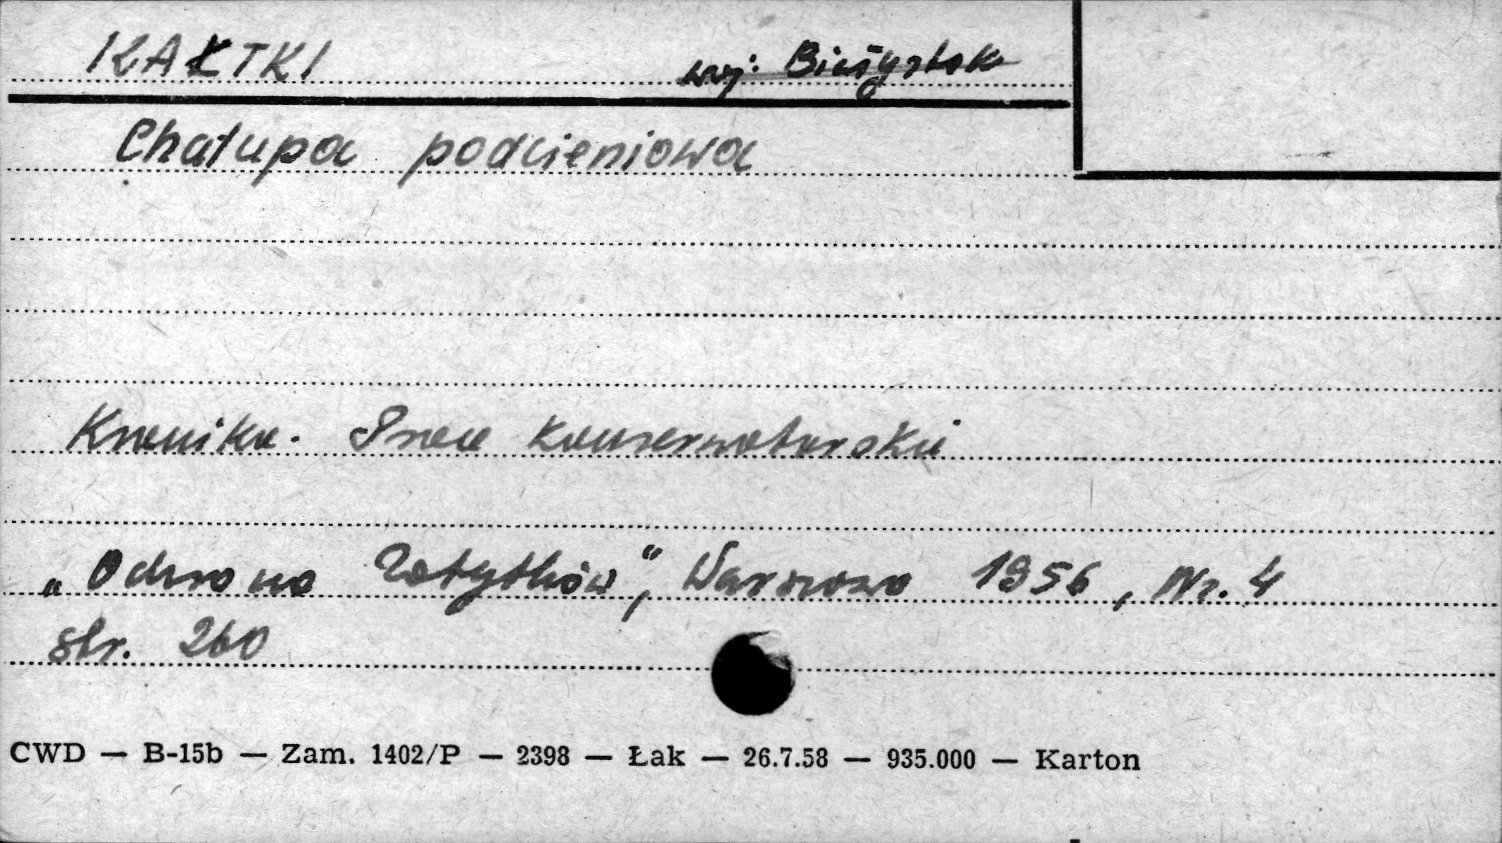 KAŁTKI woj. Białystok
Chałupa podcieniowa
Kronika. Prace konserwatorskie
„Ochrona Zabytków”, Warszawa 1956, Nr. 4
str. 260
CWD — B-15b — Zam. 1402/P — 2398 — Łak — 26.7.58 — 935.000 — Karton